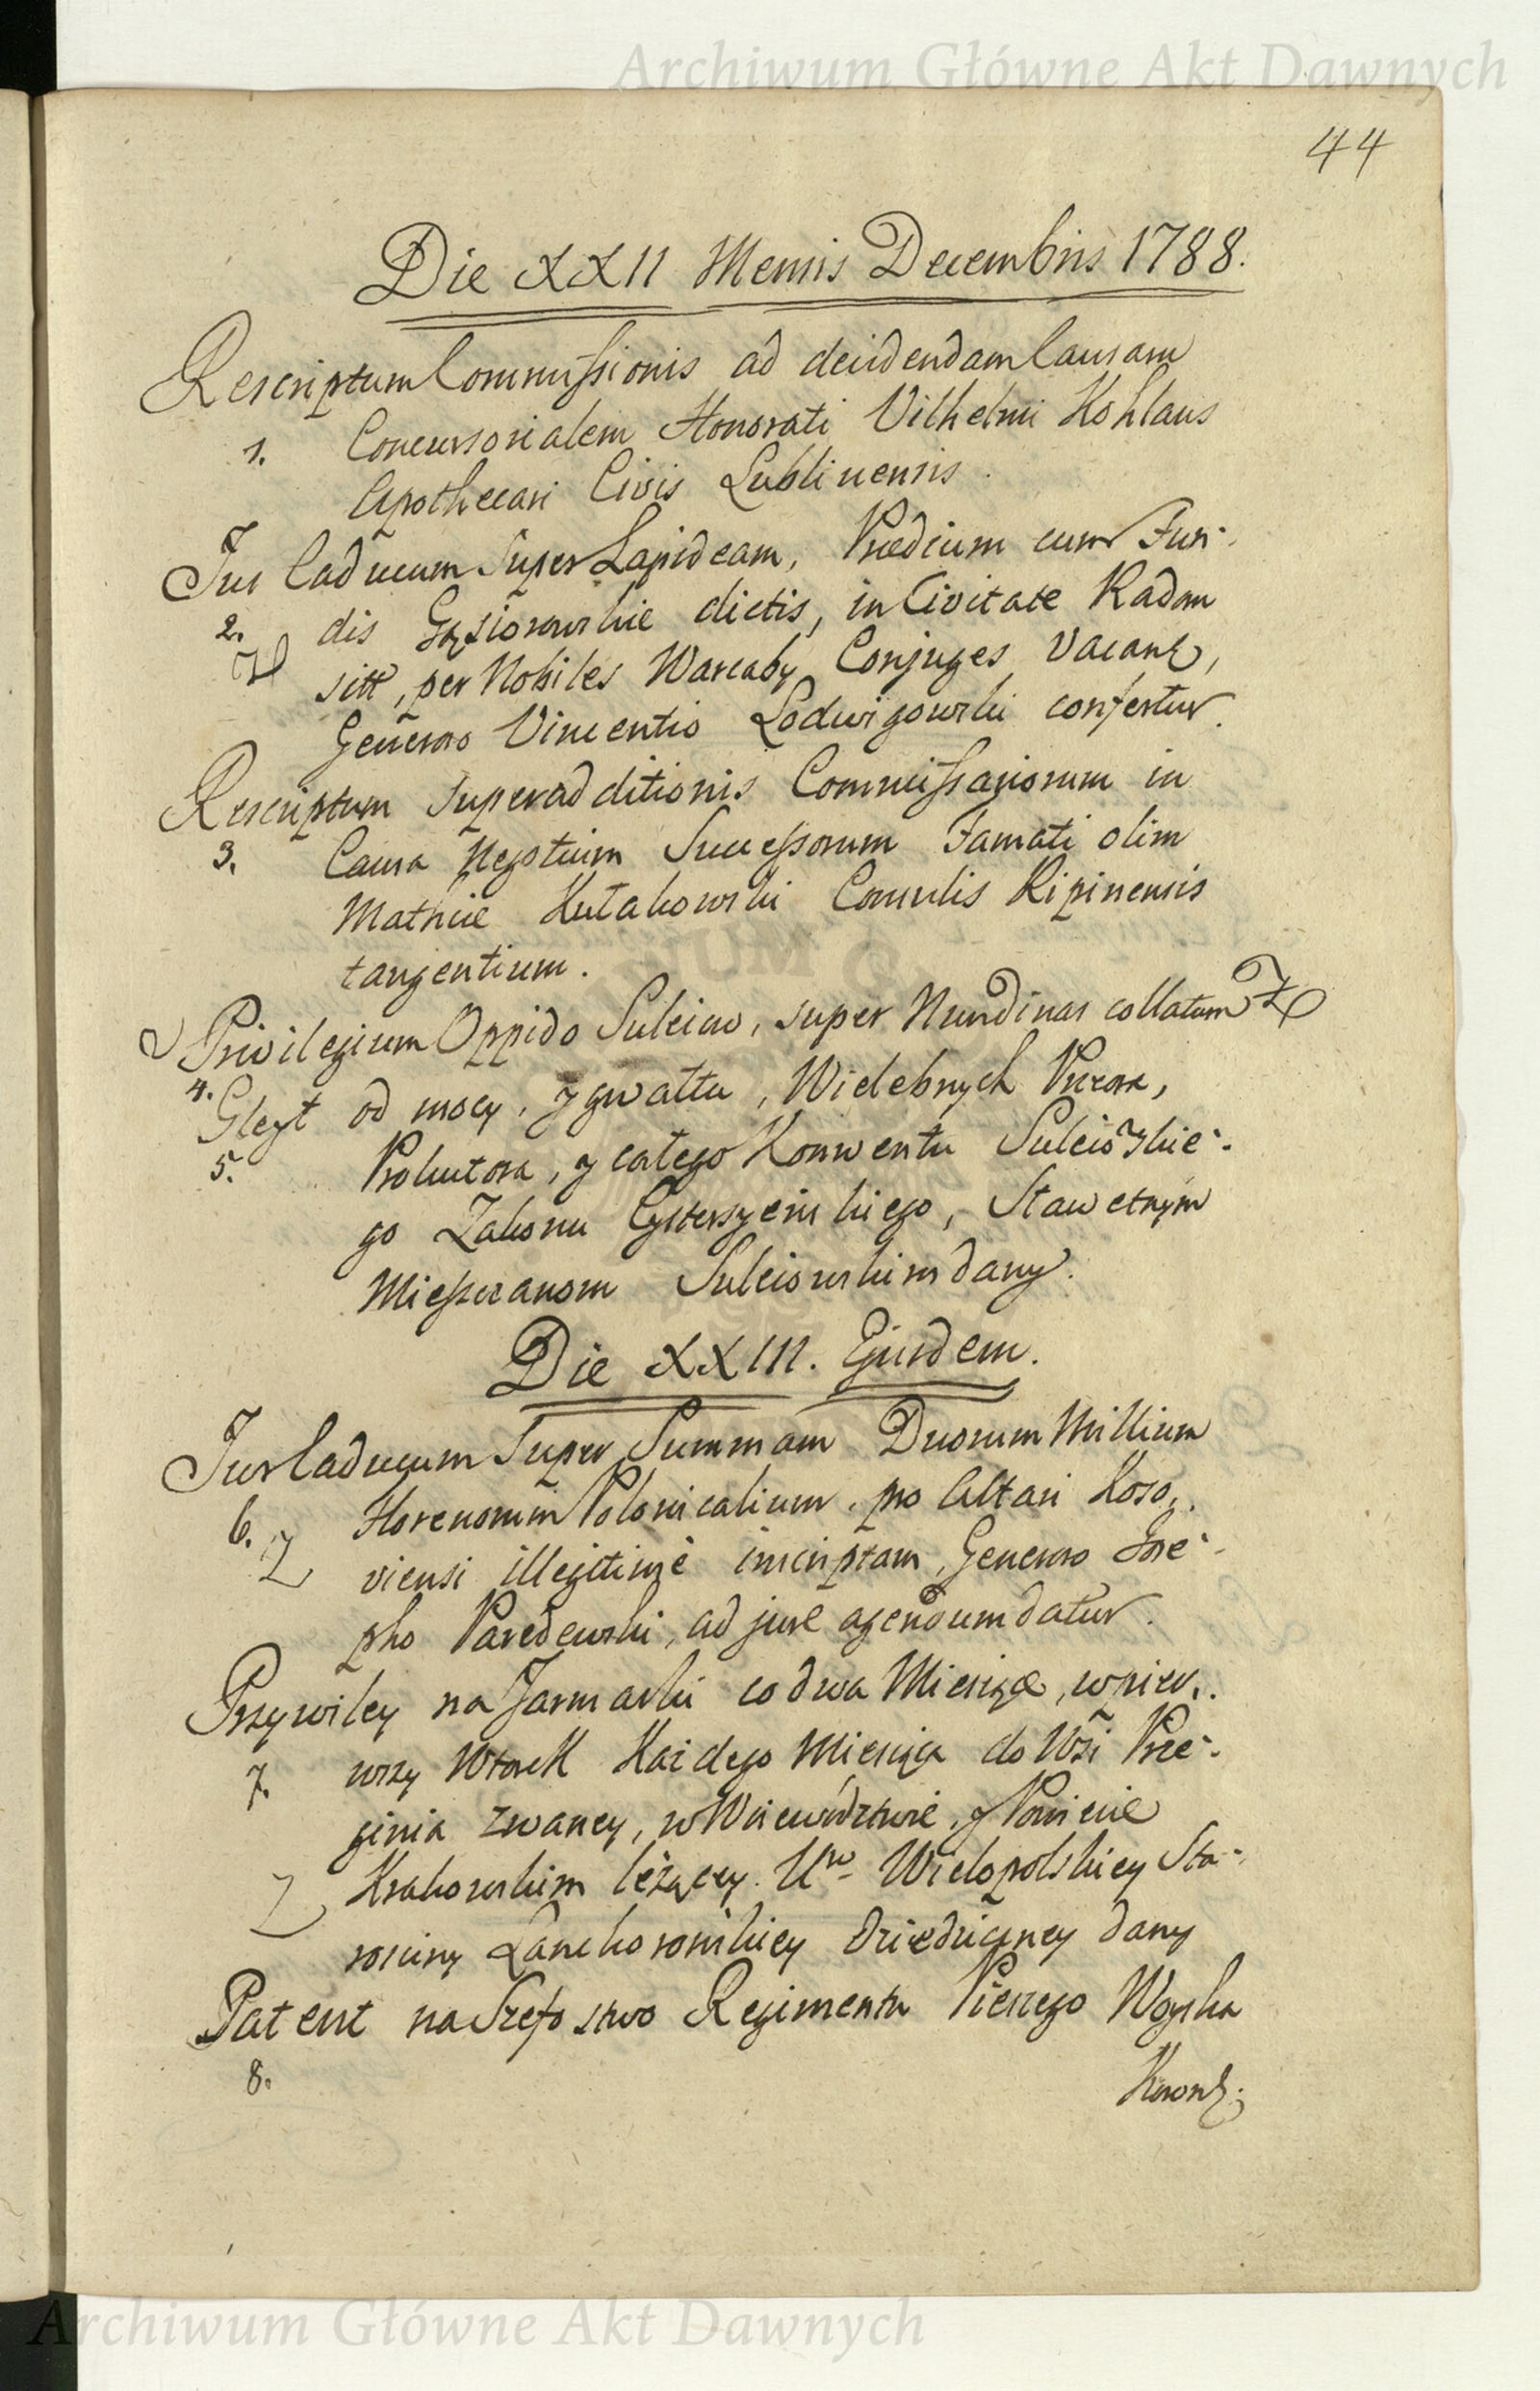 Archiwum Główne Akt Dawnych
44
Die XXII Mensis Decembris 1788.
Rescriptum Commissionis ad decidendam Causam
1. Concursorialem Honorati Vilhelmi Kohlaus
Apothecari Civis Lublinensis.
Jus Caducum super Lapideam, Prædium cum Fun-
2. dis Gąsiorowskie dictis, in Civitate Radom
sitt, per Nobiles Warcaby Conjuges vacans,
Generoso Vincentio Lodwigowski confertur.
Rescriptum superadditionis Commissariorum in
3. Causa Negotium Successorum Famati olim
Mathiæ Kutakowski Consulis Ripinensis
tangentium.
Privilegium Oppido Suleiow, super Nundinas collatum
4.
Gleyt od mocy, y gwałtu, Wielebnych Przeora,
5. Prokutora, y całego Konwentu Suleiowskie-
go Zakonu Cysterszeńskiego, Sławetnym
Mieszczanom Suleiowskim dany.
Die XXIII. Ejusdem.
Jus Caducum super Summam Duorum Millium
6. Florenorum Polonicalium, pro Altari Koso-
viensi illegitimè inscriptam, Generoso Jose-
pho Paredewski, ad jure agendum datur.
Przywiley na Jarmarki co dwa Miesiące, w pier-
7. wszy Wtorek Każdego Miesiąca do Wsi Prze-
ginia zwaney, w Woiewództwie, y Powiecie
Krakowskim leżącey. Ur. Wielopolskiey Sta-
rościny Lanckorońskiey Dziedziczney dany
Patent na Szefostwo Regimentu Pieszego Woyska
8.
Koronn:
Archiwum Główne Akt Dawnych